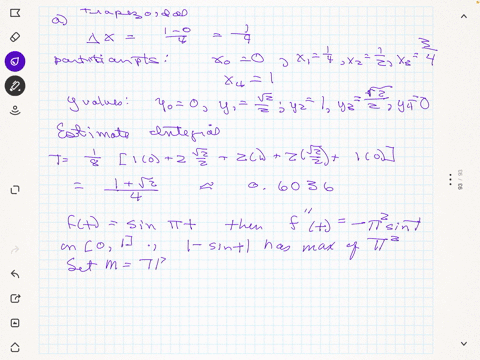 a) trapezoidal
Δx = (1-0)/4 = 1/4
partition pts: x₀ = 0, x₁ = 1/4, x₂ = 1/2, x₃ = 3/4
x₄ = 1
y values: y₀ = 0, y₁ = √2/2; y₂ = 1, y₃ = √2/2, y₄ = 0
Estimate Integral
T = 1/8 [1(0) + 2 √2/2 + 2(1) + 2(√2/2) + 1(0)]
= (1+√2)/4 ≈ 0.6036
f(t) = sin πt then f''(t) = -π² sin t
on [0, 1] ., |-sin t| has max of π²
Set M = π²